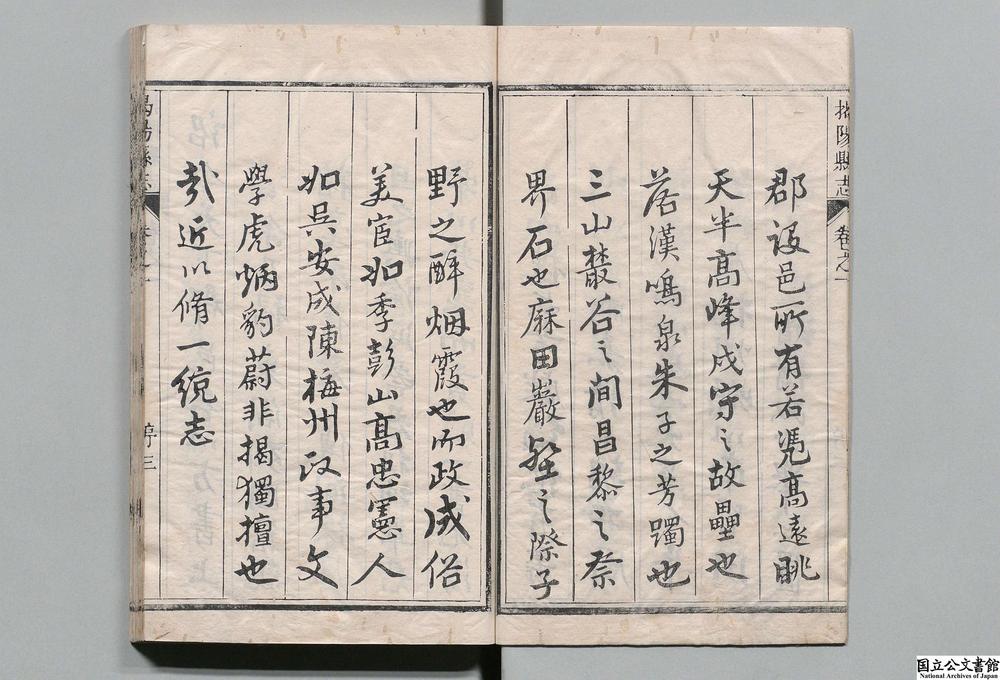 揭陽縣志 卷之一
郡設邑所有若凭高遠眺
天半高峰戍守之故壘也
落漢鳴泉朱子之芳躅也
三山叢谷之間昌黎之祭
界石也麻田巖壑之際子
野之醉烟霞也而政成俗
美宦如季彭山高忠憲人
如吳安成陳梅州政事文
學虎炳豹蔚非揭獨擅也
哉近以脩一統志
揭陽縣志 卷之一 序三
国立公文書館
National Archives of Japan